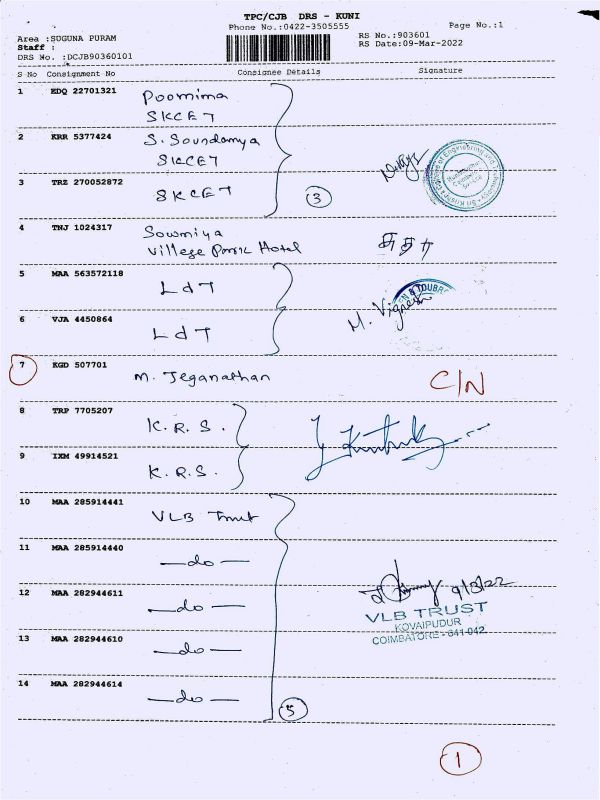 TPC/CJB DRS - KUNI
Phone No.:0422-3505555
Page No.:1
Area :SUGUNA PURAM
RS No.:903601
Staff :
RS Date:09-Mar-2022
DRS No. :DCJB90360101
S No Consignment No Consignee Details Signature
1 EDQ 22701321 Poornima
SKCET
2 KRR 5377424 S. Soundarya
SKCET
3 TRZ 270052872 SKCET
3
4 TNJ 1024317 Sowmiya
Village Park Hotel
5 MAA 563572118 L d T
M. Vignesh
6 VJA 4450864 L d T
7 KGD 507701 M. Jeganathan
C/N
8 TRP 7705207 K. R. S.
9 IXM 49914521 K. R. S.
10 MAA 285914441 VLB Trust
11 MAA 285914440 —do—
12 MAA 282944611 —do—
9/3/22
VLB TRUST
KOVAIPUDUR
COIMBATORE - 641 042
13 MAA 282944610 —do—
14 MAA 282944614 —do—
5
1